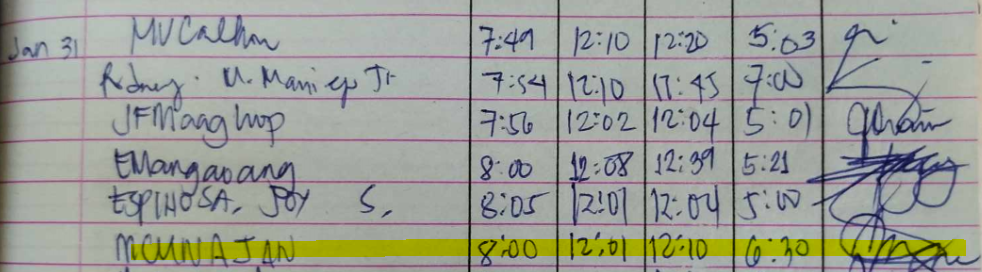 Jan 31 MVCalhn 7:49 12:10 12:20 5:03
Rodney. U. Maniego Jr 7:54 12:10 17:45 7:00
JFMaaghop 7:56 12:02 12:04 5:01
EMangaoang 8:00 12:08 12:39 5:21
ESPINOSA, JOY S. 8:05 12:01 12:04 5:00
8:00 12:01 12:10 6:30